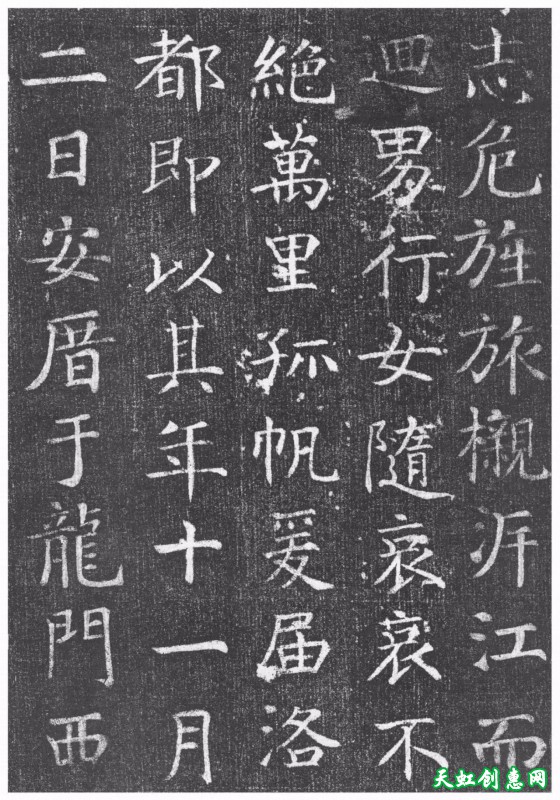 志危旌旅櫬泝江而
迴男行女隨哀哀不
絶萬里孤帆爰届洛
都即以其年十一月
二日安厝于龍門西
天虹创惠网